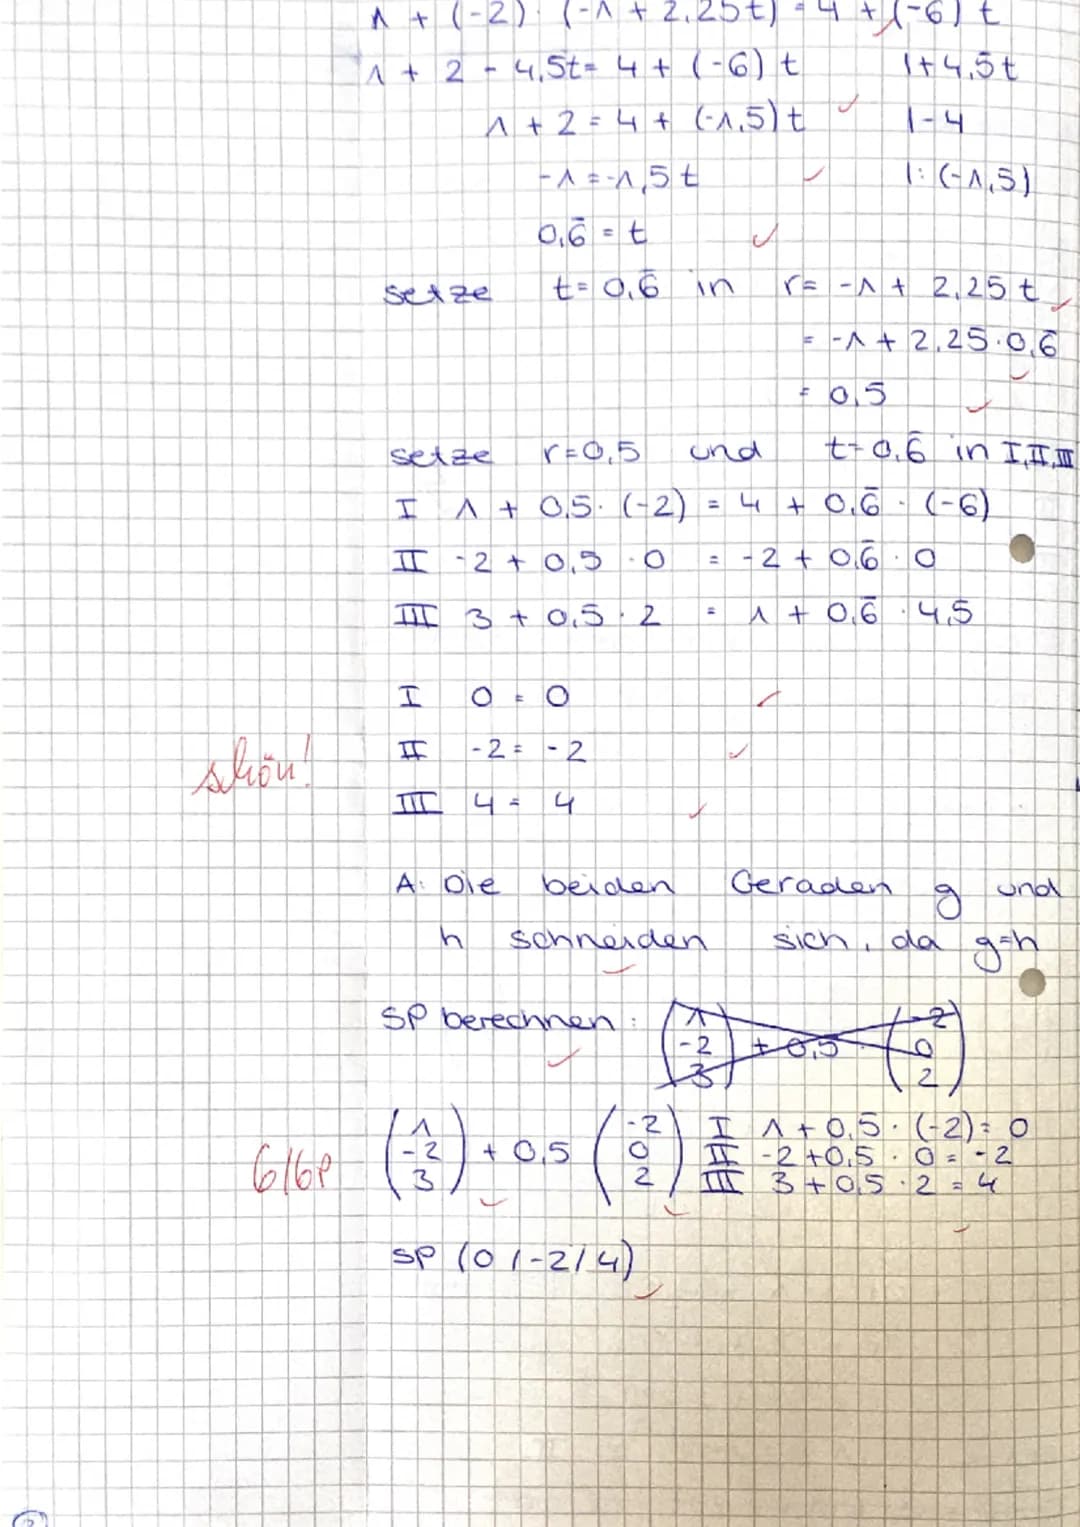 1 + (-2) · (-1 + 2,25t) = 4 + (-6) t
1 + 2 - 4,5t = 4 + (-6) t |+4,5t
1 + 2 = 4 + (-1,5) t |-4
-1 = -1,5 t |: (-1,5)
0,6̄ = t
setze t = 0,6̄ in r = -1 + 2,25 t
= -1 + 2,25 · 0,6̄
= 0,5
setze r = 0,5 und t = 0,6̄ in I, II, III
I 1 + 0,5 · (-2) = 4 + 0,6̄ · (-6)
II -2 + 0,5 · 0 = -2 + 0,6̄ · 0
III 3 + 0,5 · 2 = 1 + 0,6̄ · 4,5
I 0 = 0
schön!
II -2 = -2
III 4 = 4
A: Die beiden Geraden g und
h schneiden sich, da g=h
SP berechnen: (1 -2 3) + 0,5 · (-2 0 2)
6/6P
(1 -2 3) + 0,5 (-2 0 2)
I 1 + 0,5 · (-2) = 0
II -2 + 0,5 · 0 = -2
III 3 + 0,5 · 2 = 4
SP (0 / -2 / 4)